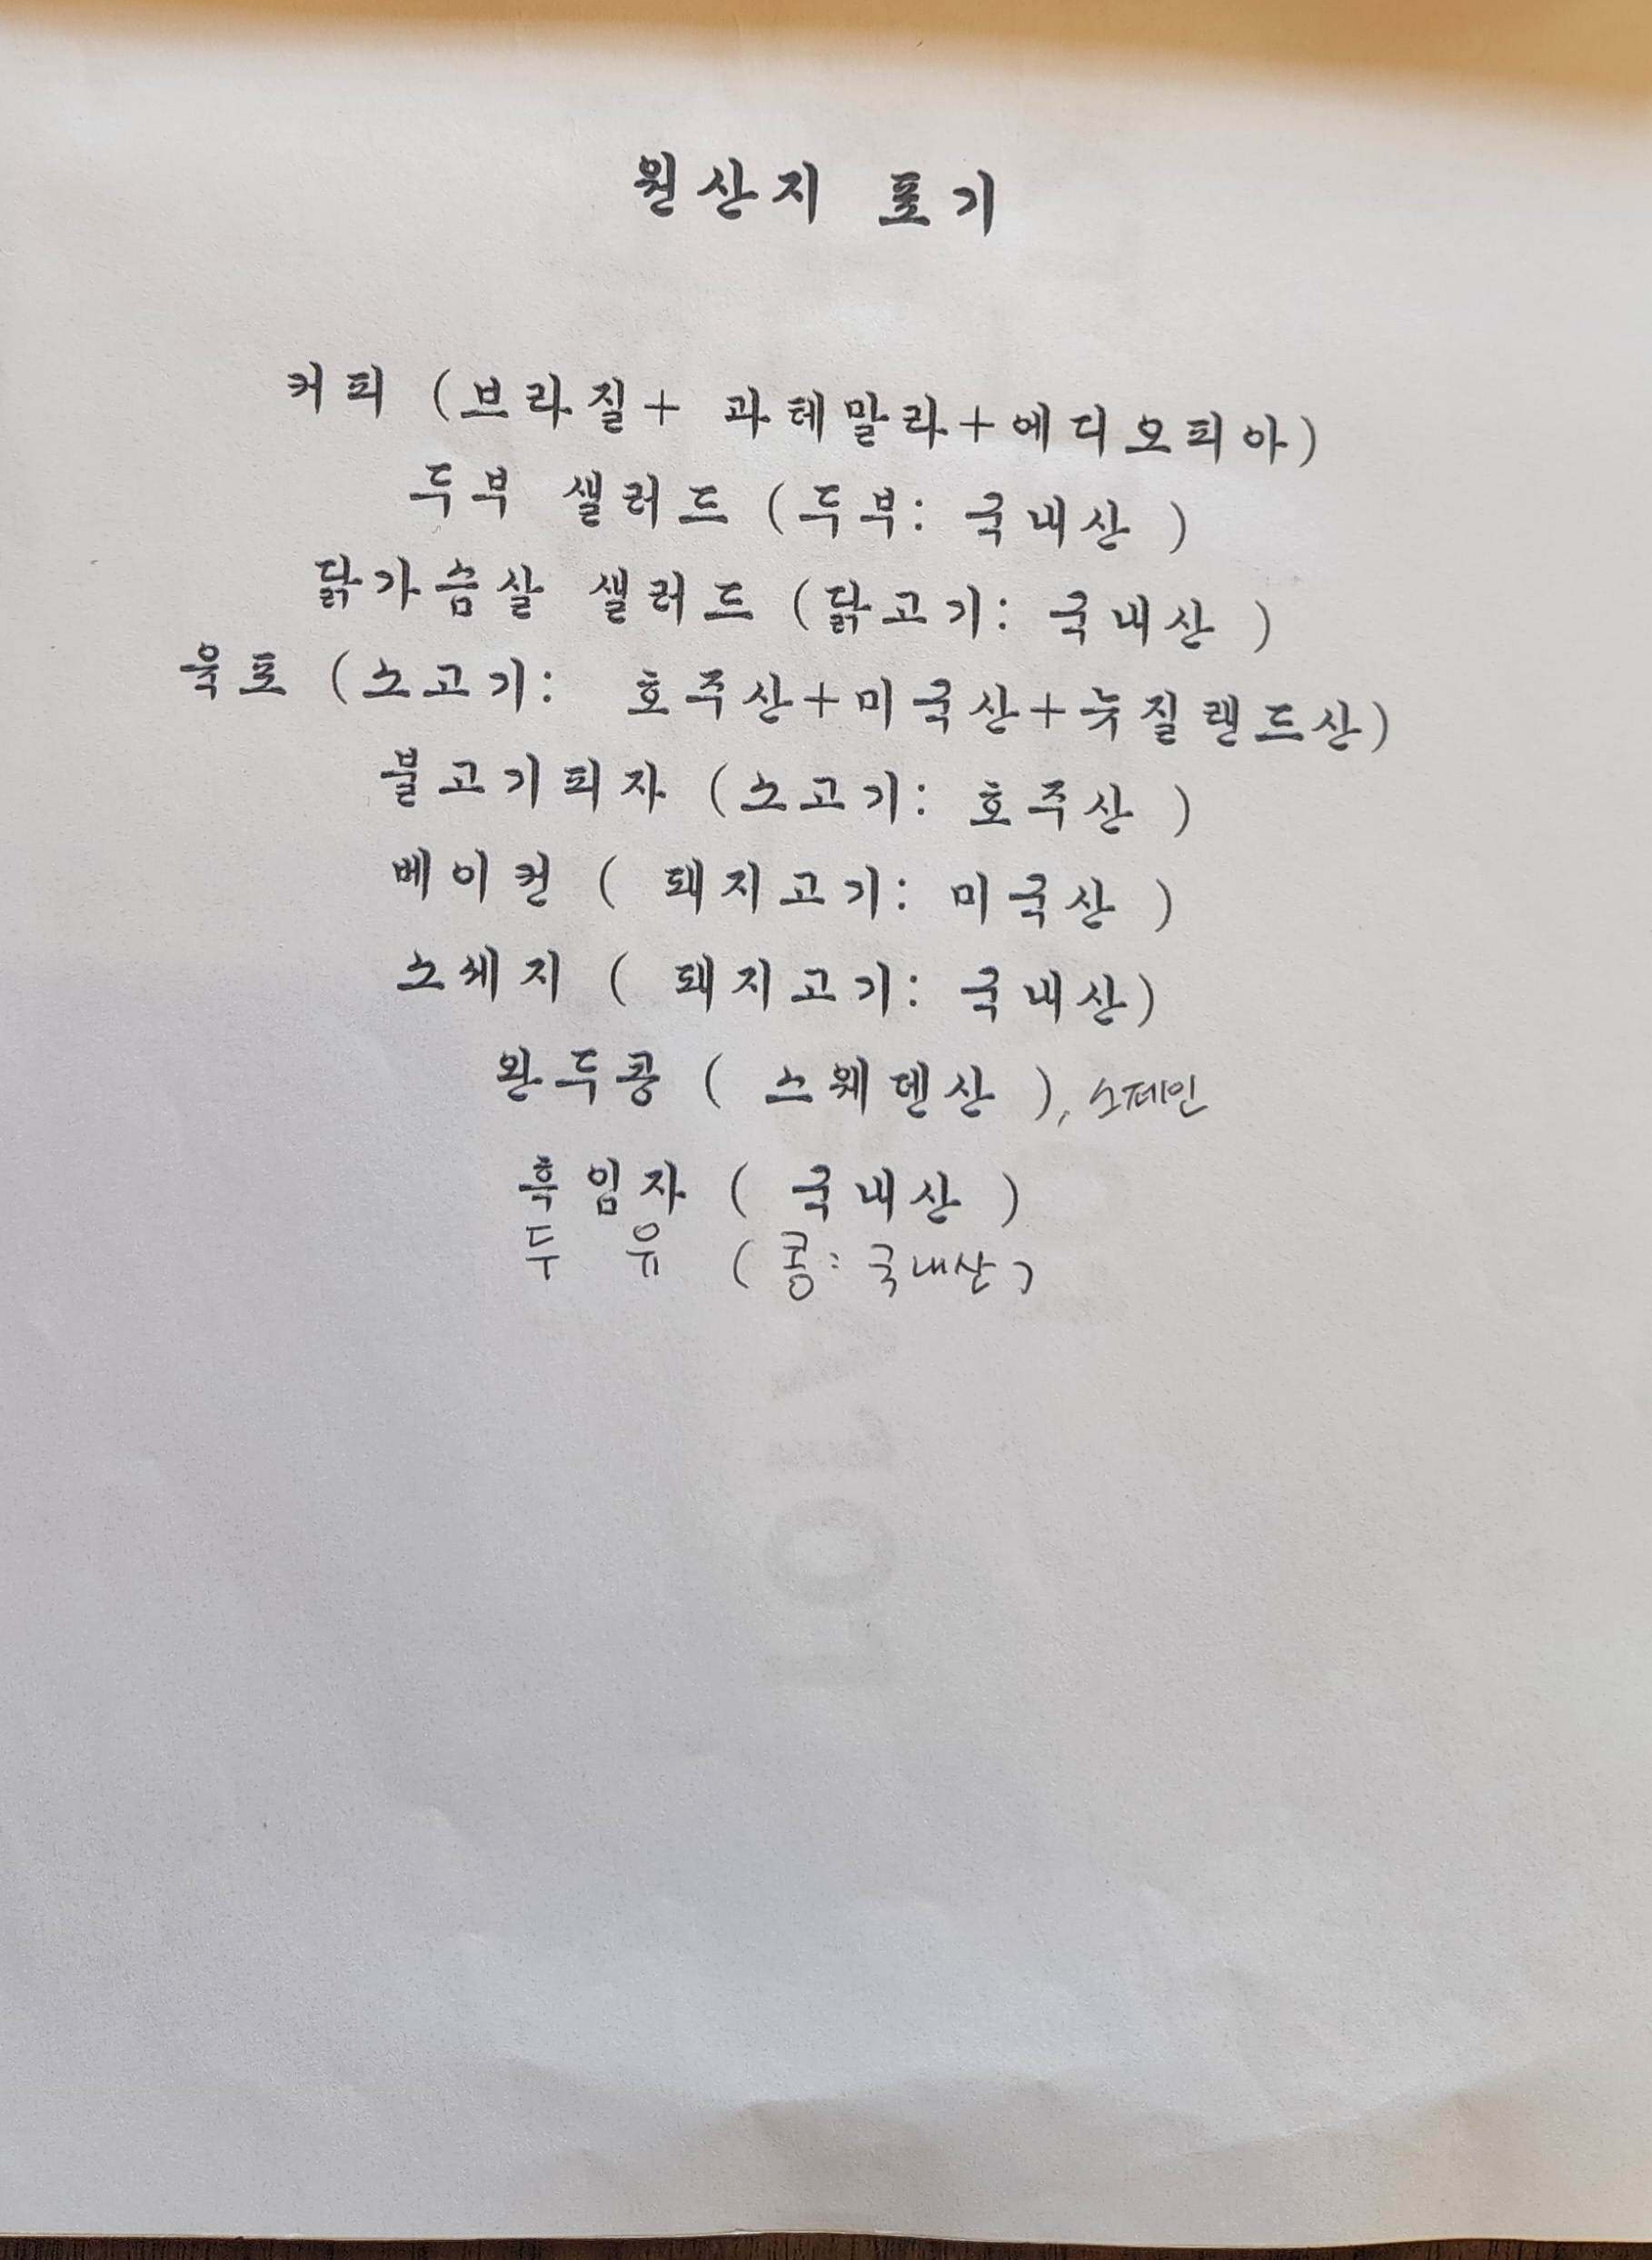 원산지 표기
커피 (브라질+ 과테말라+에디오피아)
두부 샐러드 (두부: 국내산 )
닭가슴살 샐러드 (닭고기: 국내산 )
육포 (소고기: 호주산+미국산+뉴질랜드산)
불고기피자 (소고기: 호주산 )
베이컨 ( 돼지고기: 미국산 )
소세지 ( 돼지고기: 국내산)
완두콩 ( 스웨덴산 ), 스페인
흑임자 ( 국내산 )
두 유 (콩: 국내산)